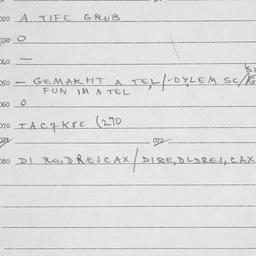 020 A TIFE GRUB
030 O
040 —
050 — GEMAKHT A TEL/-DYLEM SC/
FUN IM A TEL
060 O
070 TAC7K8E (270
072
080 DI RO,DREJCAX/DIRE,DLDREJ,CAX